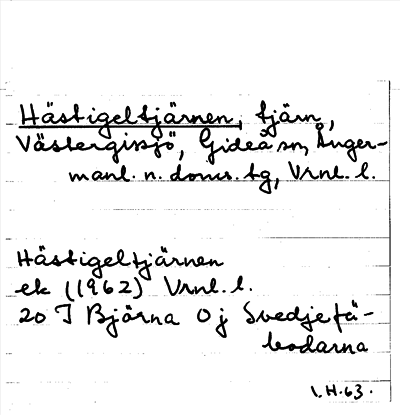 Hästigeltjärnen, tjärn,
Västergissjö, Gideå sn, Ånger-
manl. n. doms. tg, Vrnl. l.
Hästigeltjärnen
ek (1962) Vrnl. l.
20 I Björna 0 j Svedjefä-
bodarna
I.H.63.